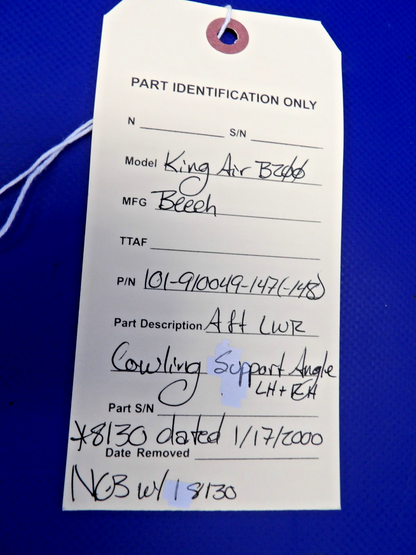 PART IDENTIFICATION ONLY
N ________ S/N ________
Model King Air B200
MFG Beech
TTAF ________
P/N 101-910049-147(-148)
Part Description Aft LWR
Cowling Support Angle
LH + RH
Part S/N ________
*8130 dated 1/17/2000
Date Removed ________
NOB w/ 1 8130